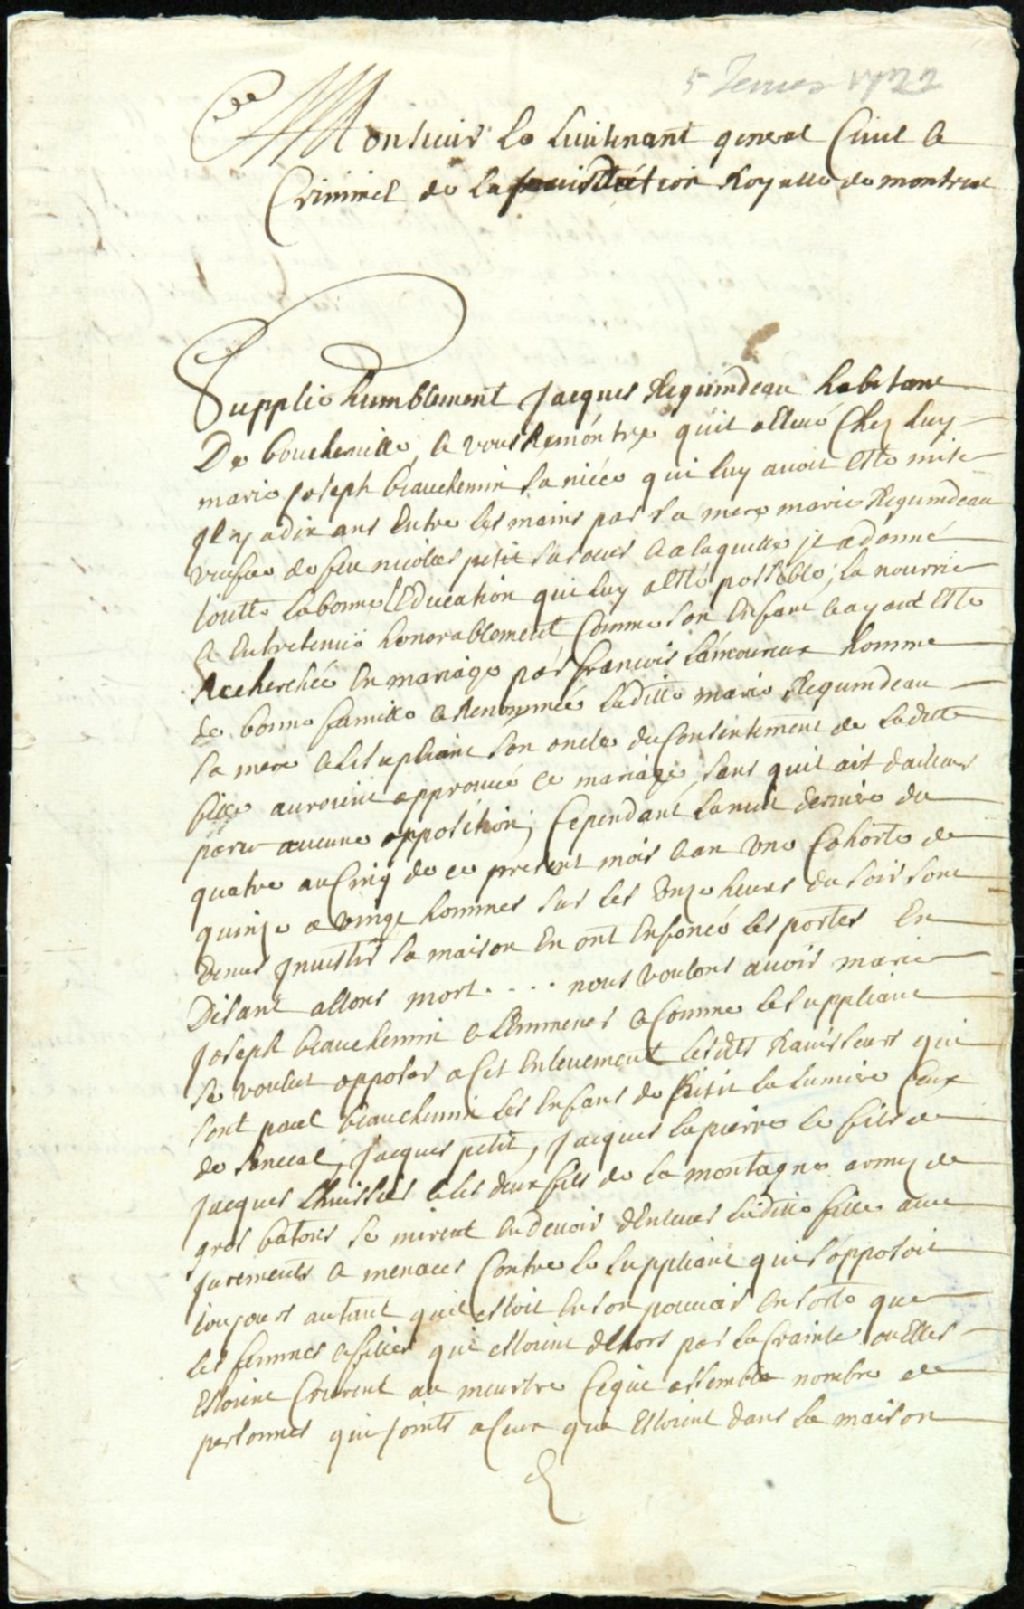 5 Janvier 1722
Monsieur Le Lieutenant general Civil &
Criminel de la jurisdiction Royalle de montreal
Supplie humblement Jacques Reguindeau habitant
De boucherville, & vous Remontre quil a eleué Chez luy
marie joseph beauchemin sa niéce qui luy auoit esté mise
jl y a dix ans Entre les mains par sa mere marie Reguindeau
veufue de feu nicolas petit sa soeur & a laquelle jl a donné
toutte la bonne Education qui luy a esté possible, la nourrie
& Entretenüe honorablement Comme son Enfant & ayant esté
Recherchée En mariage par francois Lamoureux homme
de bonne famille & Renommée laditte marie Reguindeau
sa mere & le supliant son oncle du Consentement de laditte
fille auroient approuué ce mariage, sans quil ait dailleurs
paru aucune opposition, Cependant la nuit derniere du
quatre au Cinq de ce present mois & an vne Cohorte de
quinze a vingt hommes sur les Onze heures du soir sont
venus jnuestir sa maison En ont Enfoncé les portes En
Disant allons mort .... nous voulons auoir marie
joseph beauchemin & Lemmener & Comme le suppliant
se voulut opposer a cet Enleuement lesdits Rauisseurs qui
sont paul beauchemin les Enfans de petit la lumiere Ceux
de senecal, jacques petit, jacques lapierre le fils de
jacques Lhuissier & les deux fils de la montagne armez de
gros batons se mirent En deuoir dEnleuer laditte fille auec
juremens & menaces Contre le suppliant qui sopposoit
toujours autant quil estoit En son pouuoir En sorte que
les femmes & filles qui estoient dehors par la Crainte ou Elles
Estoient Crierent au meurtre Ce qui assembla nombre de
personnes qui joints a ceux qui Estoient dans la maison